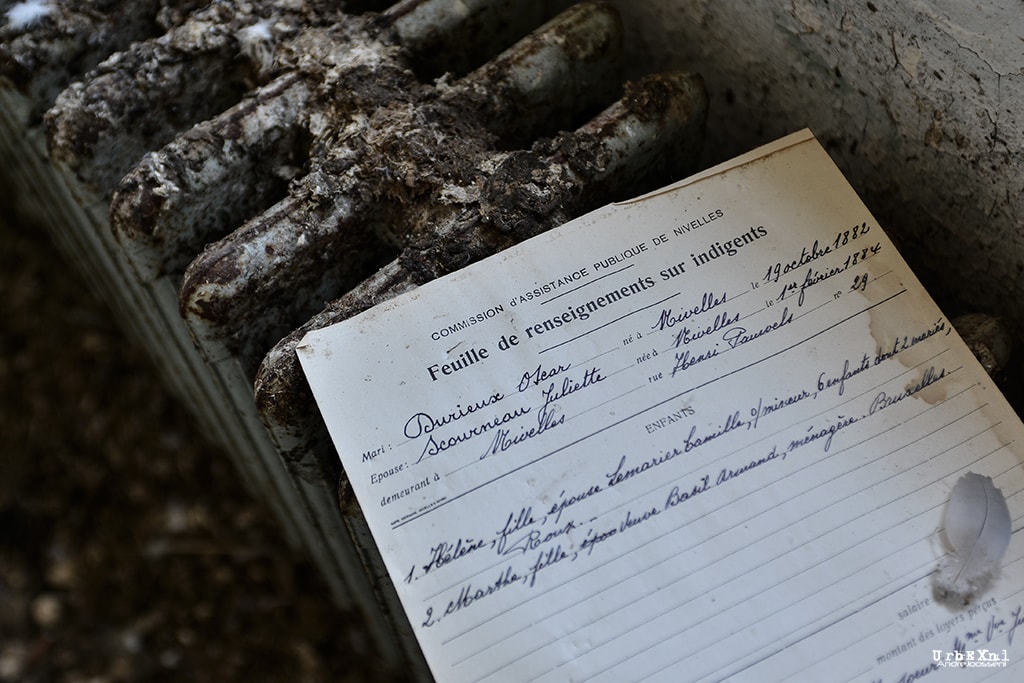 COMMISSION D'ASSISTANCE PUBLIQUE DE NIVELLES
Feuille de renseignements sur indigents
Mari: Durieux Oscar né à Nivelles le 19 octobre 1882
Epouse: Scourneau Juliette née à Nivelles le 1er février 1884
demeurant à Nivelles rue Henri Pauwels n° 29
ENFANTS
1. Hélène, fille, épouse Lemarier Camille, o/mineur, 6 enfants dont 2 mariés,
Roux.
2. Marthe, fille, veuve Basil Armand, ménagère. Bruxelles.
salaire
montant des loyers perçus
UrbEXnl
André Joosse